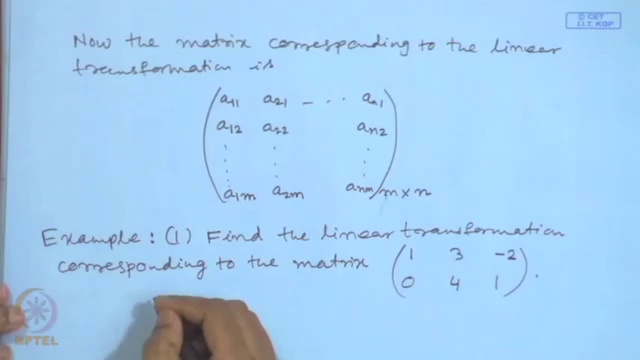 © CET
I.I.T. KGP
Now the matrix corresponding to the linear
transformation is
a11 a21 - ... an1
a12 a22 an2
⋮ ⋮ ⋮
a1m a2m anm m×n
Example: (1) Find the linear transformation
corresponding to the matrix (1 3 -2
0 4 1).
NPTEL